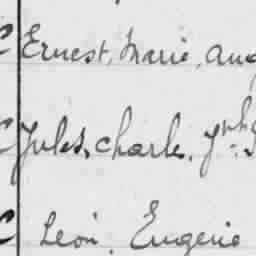 Ernest, Marie, Aug
Jules, Charle, Jph
Leon, Eugenie